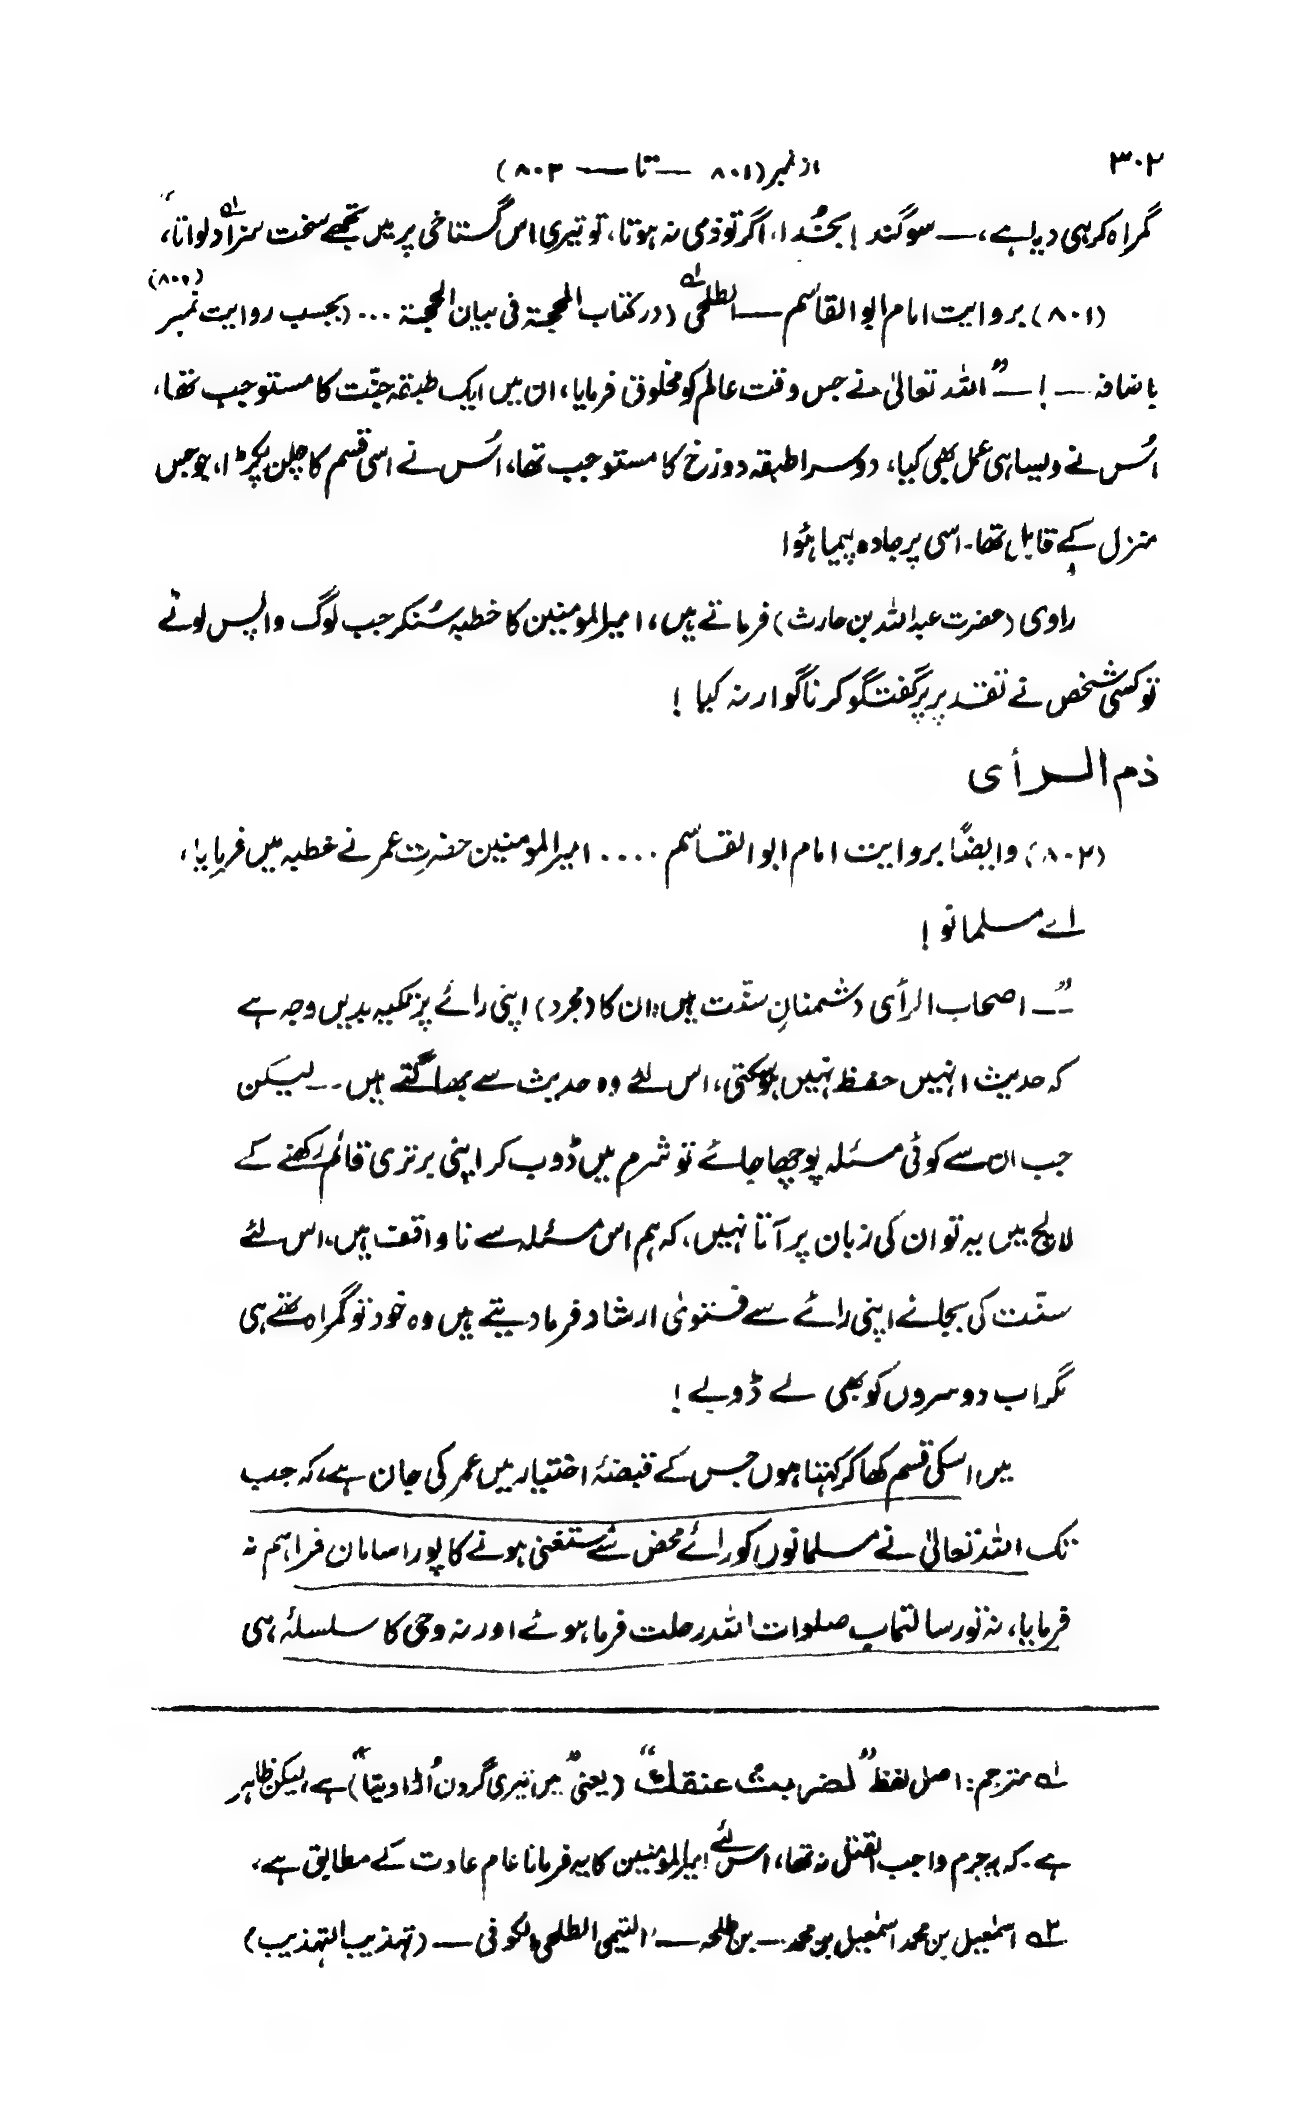 ۳۰۲
از نمبر (۸۰۱ — تا — ۸۰۲)
گمراہ کر ہی دیا ہے، — سوگند بخُدا، اگر تو ذمی نہ ہوتا، تو تیری اس گستاخی پر میں تجھے سخت سزا دلواتا،؂۱
(۸۰۱) بروایت امام ابو القاسم — الطلحی؂۲ (در کتاب المحجۃ فی بیان الحجۃ ... (بحسب روایت نمبر (۸۰۰)
باضافہ — ! — ”اللہ تعالیٰ نے جس وقت عالم کو مخلوق فرمایا، ان میں ایک طبقہ جنّت کا مستوجب تھا،
اُس نے ویسا ہی عمل بھی کیا، دوسرا طبقہ دوزخ کا مستوجب تھا، اُس نے اسی قسم کا چلن پکڑا، جو جس
منزل کے قابل تھا۔ اسی پر جادہ پیما ہُوا
راوی (حضرت عبداللہ بن حارث) فرماتے ہیں، امیرالمومنین کا خطبہ سُنکر جب لوگ واپس لوٹے
تو کسی شخص نے تقدیر پر گفتگو کرنا گوارا نہ کیا !
ذم الرأی
(۸۰۲) وایضًا بروایت امام ابو القاسم .... امیرالمومنین حضرت عمر نے خطبہ میں فرمایا،
اے مسلمانو !
”— اصحاب الرأی دشمنانِ سنّت ہیں، ان کا (مجرد) اپنی رائے پر تکیہ بدیں وجہ ہے
کہ حدیث انہیں حفظ نہیں ہو سکتی، اس لئے وہ حدیث سے بھاگتے ہیں۔ — لیکن
جب ان سے کوئی مسئلہ پوچھا جائے تو شرم میں ڈوب کر اپنی برتری قائم رکھنے کے
لالچ میں یہ تو ان کی زبان پر آتا نہیں، کہ ہم اس مسئلہ سے ناواقف ہیں، اس لئے
سنّت کی بجائے اپنی رائے سے فتویٰ ارشاد فرما دیتے ہیں وہ خود تو گمراہ تھے ہی
مگر اب دوسروں کو بھی لے ڈوبے !
میں اسکی قسم کھا کر کہتا ہوں جس کے قبضۂ اختیار میں عمر کی جان ہے، کہ جب
تک اللہ تعالیٰ نے مسلمانوں کو رائے محض سے مستغنی ہونے کا پورا سامان فراہم نہ
فرمایا، نہ تو رسالتماب صلوات اللہ رحلت فرما ہوئے اور نہ وحی کا سلسلہ ہی
؂۱ مترجم: اصل لفظ ”لضربتُ عنقك“ (یعنی ”میں تیری گردن اُڑا دیتا“) ہے، لیکن ظاہر
ہے۔ کہ یہ جرم واجب القتل نہ تھا، اس لئے امیرالمومنین کا یہ فرمانا عام عادت کے مطابق ہے،
؂۲ اسمٰعیل بن محمد اسمٰعیل بن محمد — بن طلحہ — التیمی الطلحی الکوفی — (تہذیب التہذیب)